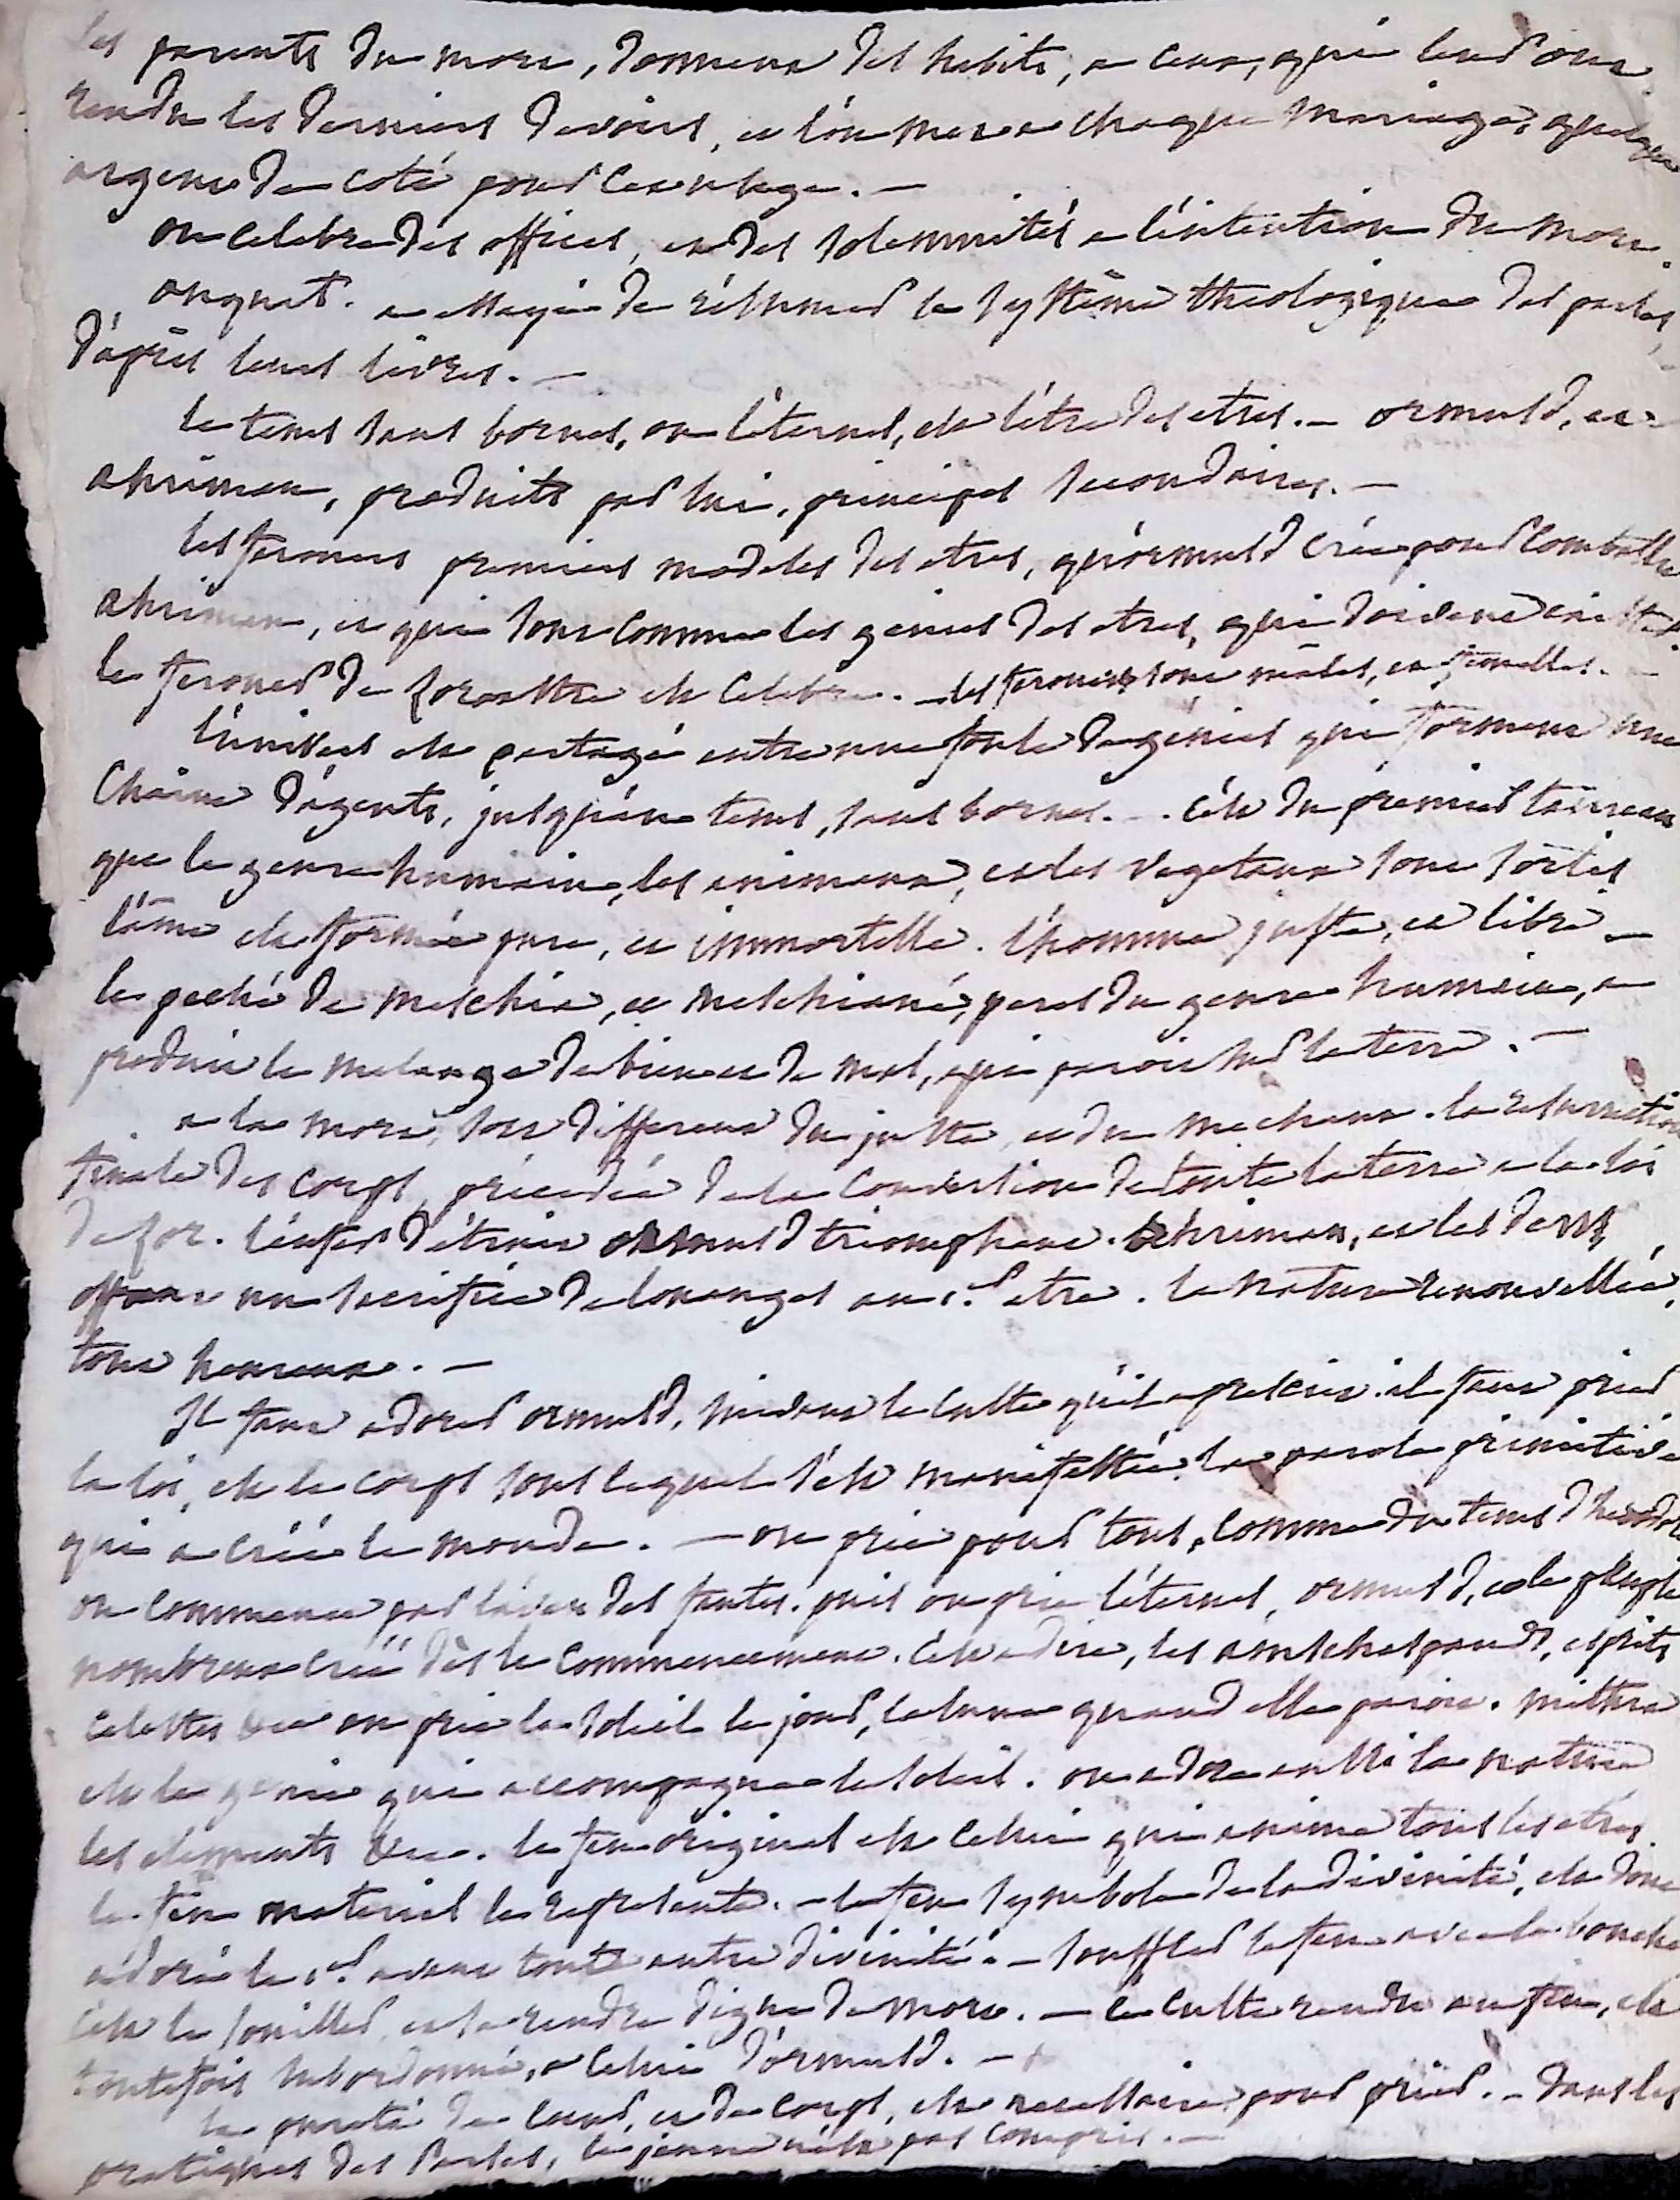 les parents du mort, donnent des habits, a ceux, qui leur ont
rendu les derniers devoirs, et l'on met a chaque mariage, quelque
argent de coté pour cet usage. —
on celebre des offices, et des solemnités a l'intention du mort.
anquet. a essayé de résumer le systême theologique des parses,
d'après leurs livres. —
le tems sans bornes, ou l'éternel, est l'être des etres. — ormusd, et
ahriman, produits par lui, principes secondaires. —
les feroüers premiers modeles des etres, qu'ormusd créa pour combattre
ahriman, et qui sont comme les genies des etres, qui doivent exister
le feroüer de zoroastre est celebre. — les feroüers sont mâles, et femelles. —
l'univers est partagé entre une foule de génies qui forment une
chaine d'agents, jusqu'au tems, sans bornes. — c'est du premier taureau
que le genre humain, les animaux, et les vegetaux sont sortis
l'âme est formée pure, et immortelle. l'homme juste, et libre —
le peché de meschia, et meschiané, peres du genre humain, a
produit le melange de bien et de mal, qui paroit sur la terre. —
a la mort, sort different du juste, et du mechant. la resurrection
finale des corps, précedée de la conversion de toute la terre a la loi
de zor. l'enfer détruit ormusd triomphant. ahriman, et les dews,
offrant un sacrifice de louanges au 1.er etre. la nature renouvellée,
tous heureux. —
Il faut adorer ormusd, suivant le culte qu'il a prescrit. il faut prier
la loi, est le corps sous lequel s'est manifestée la parole primitive
qui a créé le monde. — on prie pour tous, comme du tems d'herodote
on commence par l'aveu des fautes. puis on prie l'éternel, ormusd, et le peuple
nombreux créé dès le commencement. c'est a dire, les amschaspands, esprits
celestes &c. on prie le soleil le jour, la lune quand elle paroit. mithra
est le genie qui accompagne le soleil. on adore aussi la nature
les elements &c. le feu originel est celui qui anime tous les etres.
le feu materiel le represente. — le feu symbole de la divinité, est donc
adoré le 1.er avant toute autre divinité. — souffler le feu avec la bouche
c'est le souiller, et se rendre digne de mort. — le culte rendu au feu, est
toutefois subordonné, a celui d'ormusd. —
la pureté du coeur, et du corps, est necessaire pour prier. — dans les
pratiques des Parses, le jeune n'est pas compris. —